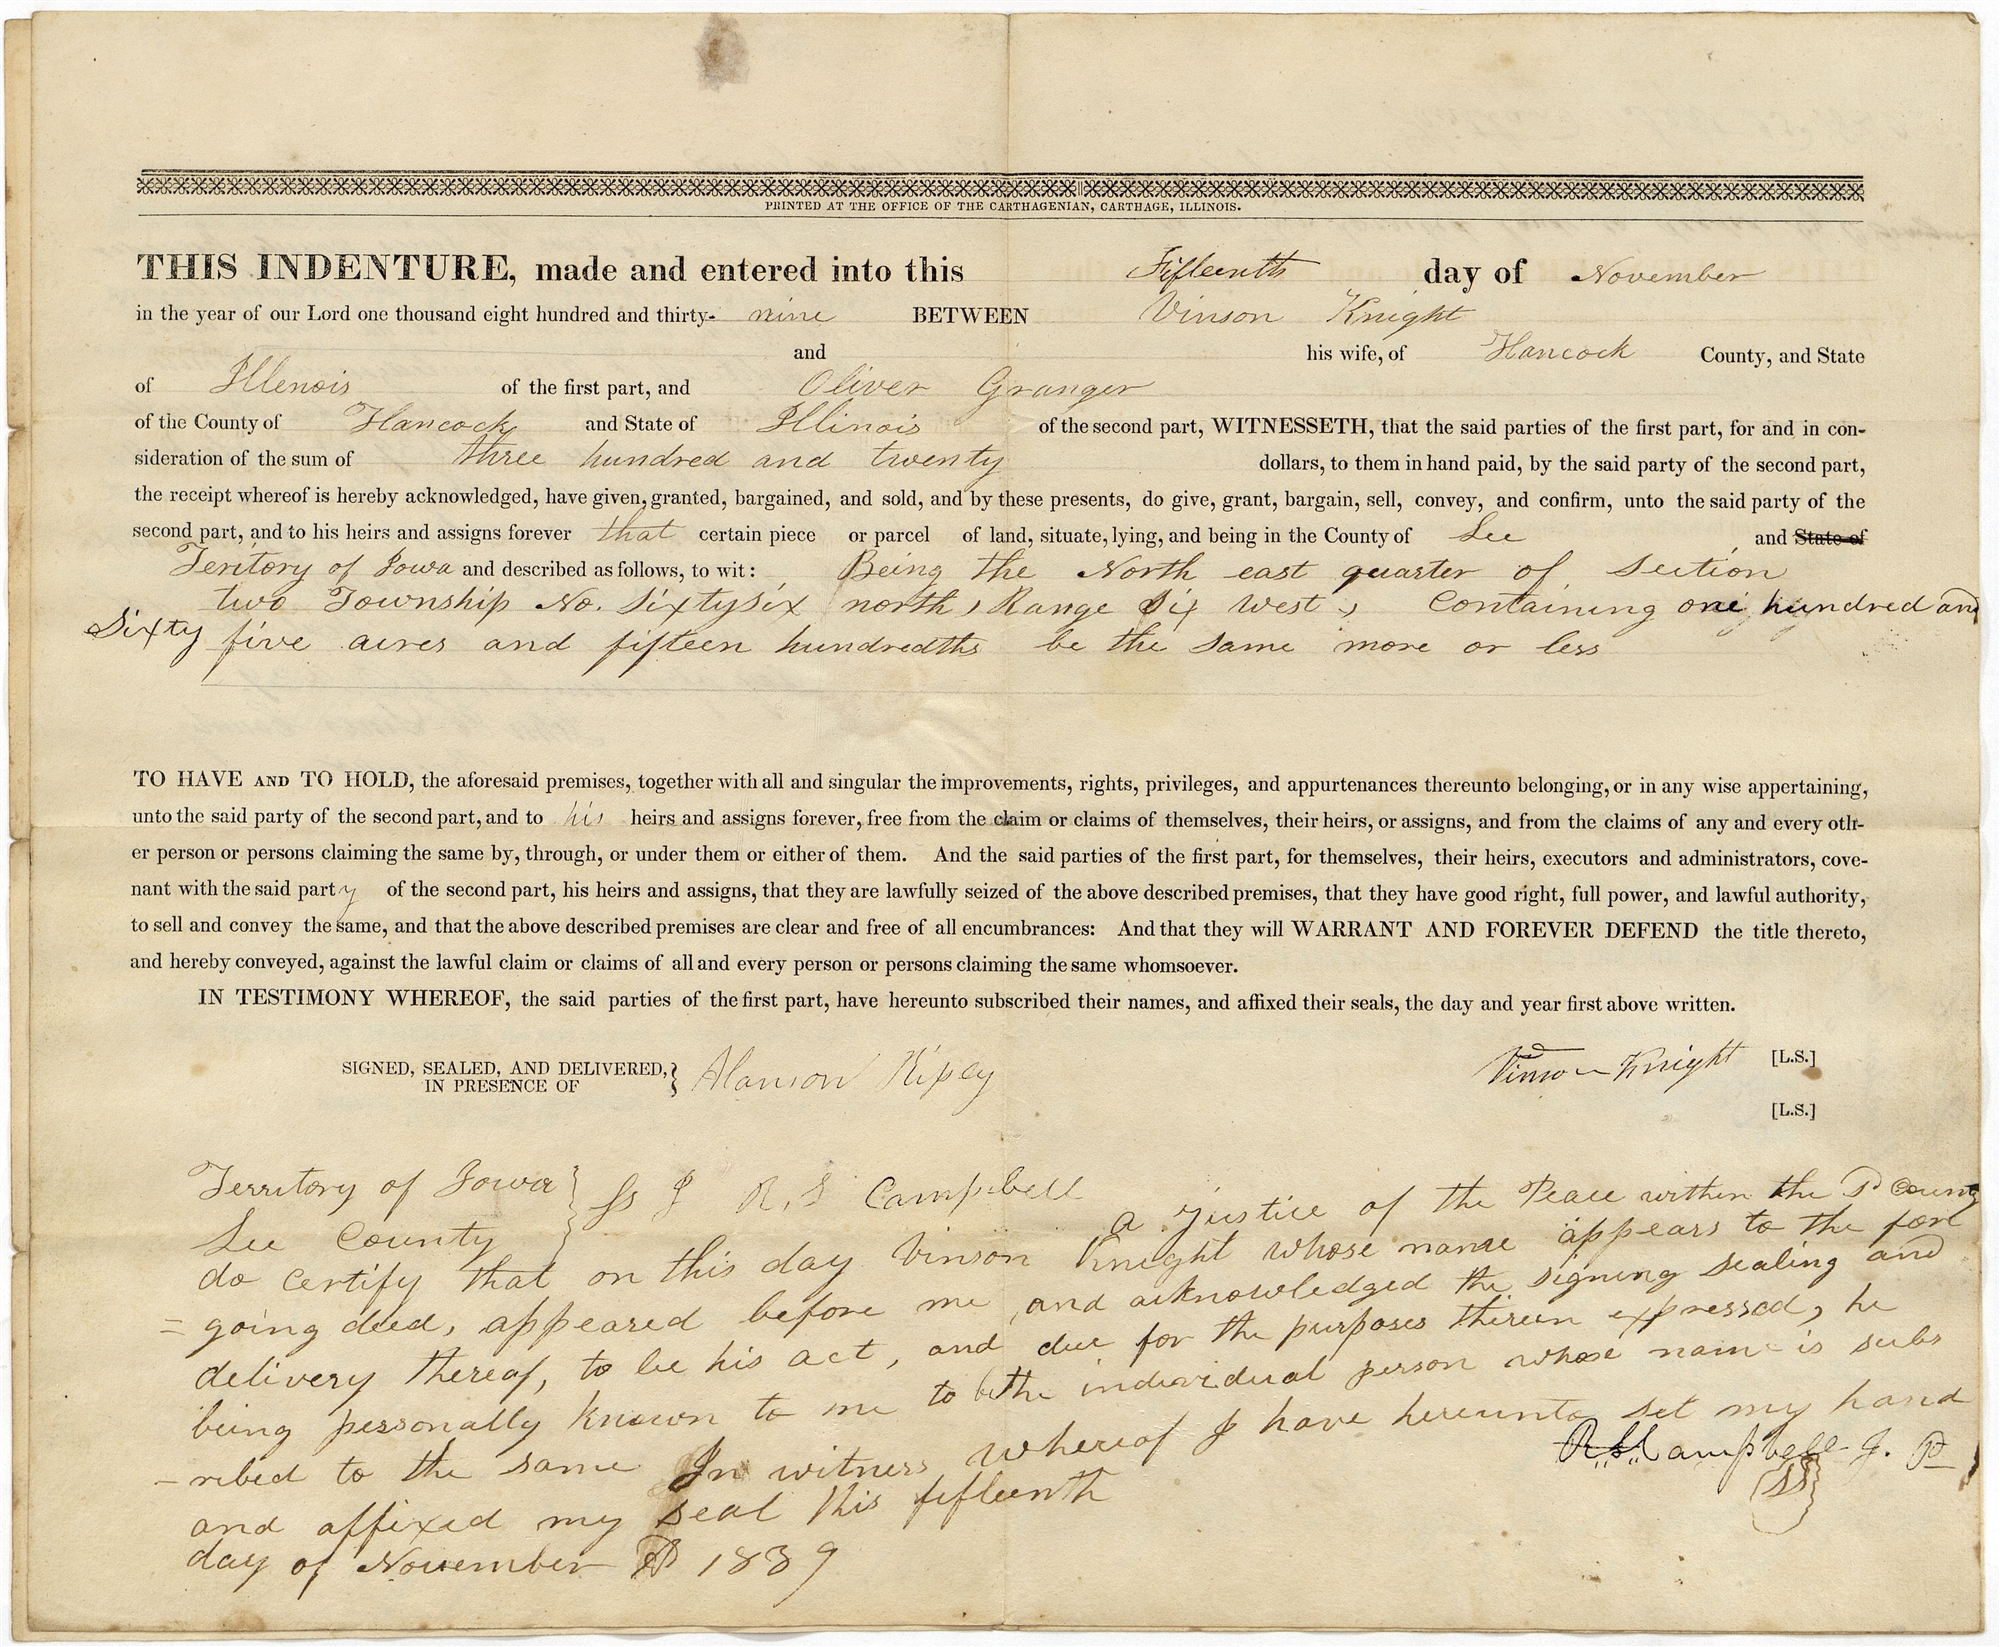 PRINTED AT THE OFFICE OF THE CARTHAGENIAN, CARTHAGE, ILLINOIS.
THIS INDENTURE, made and entered into this Fifteenth day of November
in the year of our Lord one thousand eight hundred and thirty- nine BETWEEN Vinson Knight
and his wife, of Hancock County, and State
of Illenois of the first part, and Oliver Granger
of the County of Hancock and State of Illinois of the second part, WITNESSETH, that the said parties of the first part, for and in con-
sideration of the sum of three hundred and twenty dollars, to them in hand paid, by the said party of the second part,
the receipt whereof is hereby acknowledged, have given, granted, bargained, and sold, and by these presents, do give, grant, bargain, sell, convey, and confirm, unto the said party of the
second part, and to his heirs and assigns forever that certain piece or parcel of land, situate, lying, and being in the County of Lee and State of
Teritory of Iowa and described as follows, to wit: Being the North east quarter of Section
two Township No. Sixtysix north, Range Six West, Containing one hundred and
Sixty five acres and fifteen hundredths be the same more or less
TO HAVE AND TO HOLD, the aforesaid premises, together with all and singular the improvements, rights, privileges, and appurtenances thereunto belonging, or in any wise appertaining,
unto the said party of the second part, and to his heirs and assigns forever, free from the claim or claims of themselves, their heirs, or assigns, and from the claims of any and every oth-
er person or persons claiming the same by, through, or under them or either of them. And the said parties of the first part, for themselves, their heirs, executors and administrators, cove-
nant with the said party of the second part, his heirs and assigns, that they are lawfully seized of the above described premises, that they have good right, full power, and lawful authority,
to sell and convey the same, and that the above described premises are clear and free of all encumbrances: And that they will WARRANT AND FOREVER DEFEND the title thereto,
and hereby conveyed, against the lawful claim or claims of all and every person or persons claiming the same whomsoever.
IN TESTIMONY WHEREOF, the said parties of the first part, have hereunto subscribed their names, and affixed their seals, the day and year first above written.
SIGNED, SEALED, AND DELIVERED, } Alanson Ripley Vinson Knight [L.S.]
IN PRESENCE OF
[L.S.]
Territory of Iowa } Ss I R. S Campbell a justice of the Peace within the Sd County
Lee County }
do certify that on this day Vinson Knight whose name appears to the fore
=going deed, appeared before me and acknowledged the signing sealing and
delivery thereof, to be his act, and due for the purposes therein expressed, he
being personally known to me to be the individual person whose name is subs
-ribed to the same In witness whereof I have hereunto set my hand
and affixed my seal this fifteenth R. S. Campbell J. P
day of November AD 1839